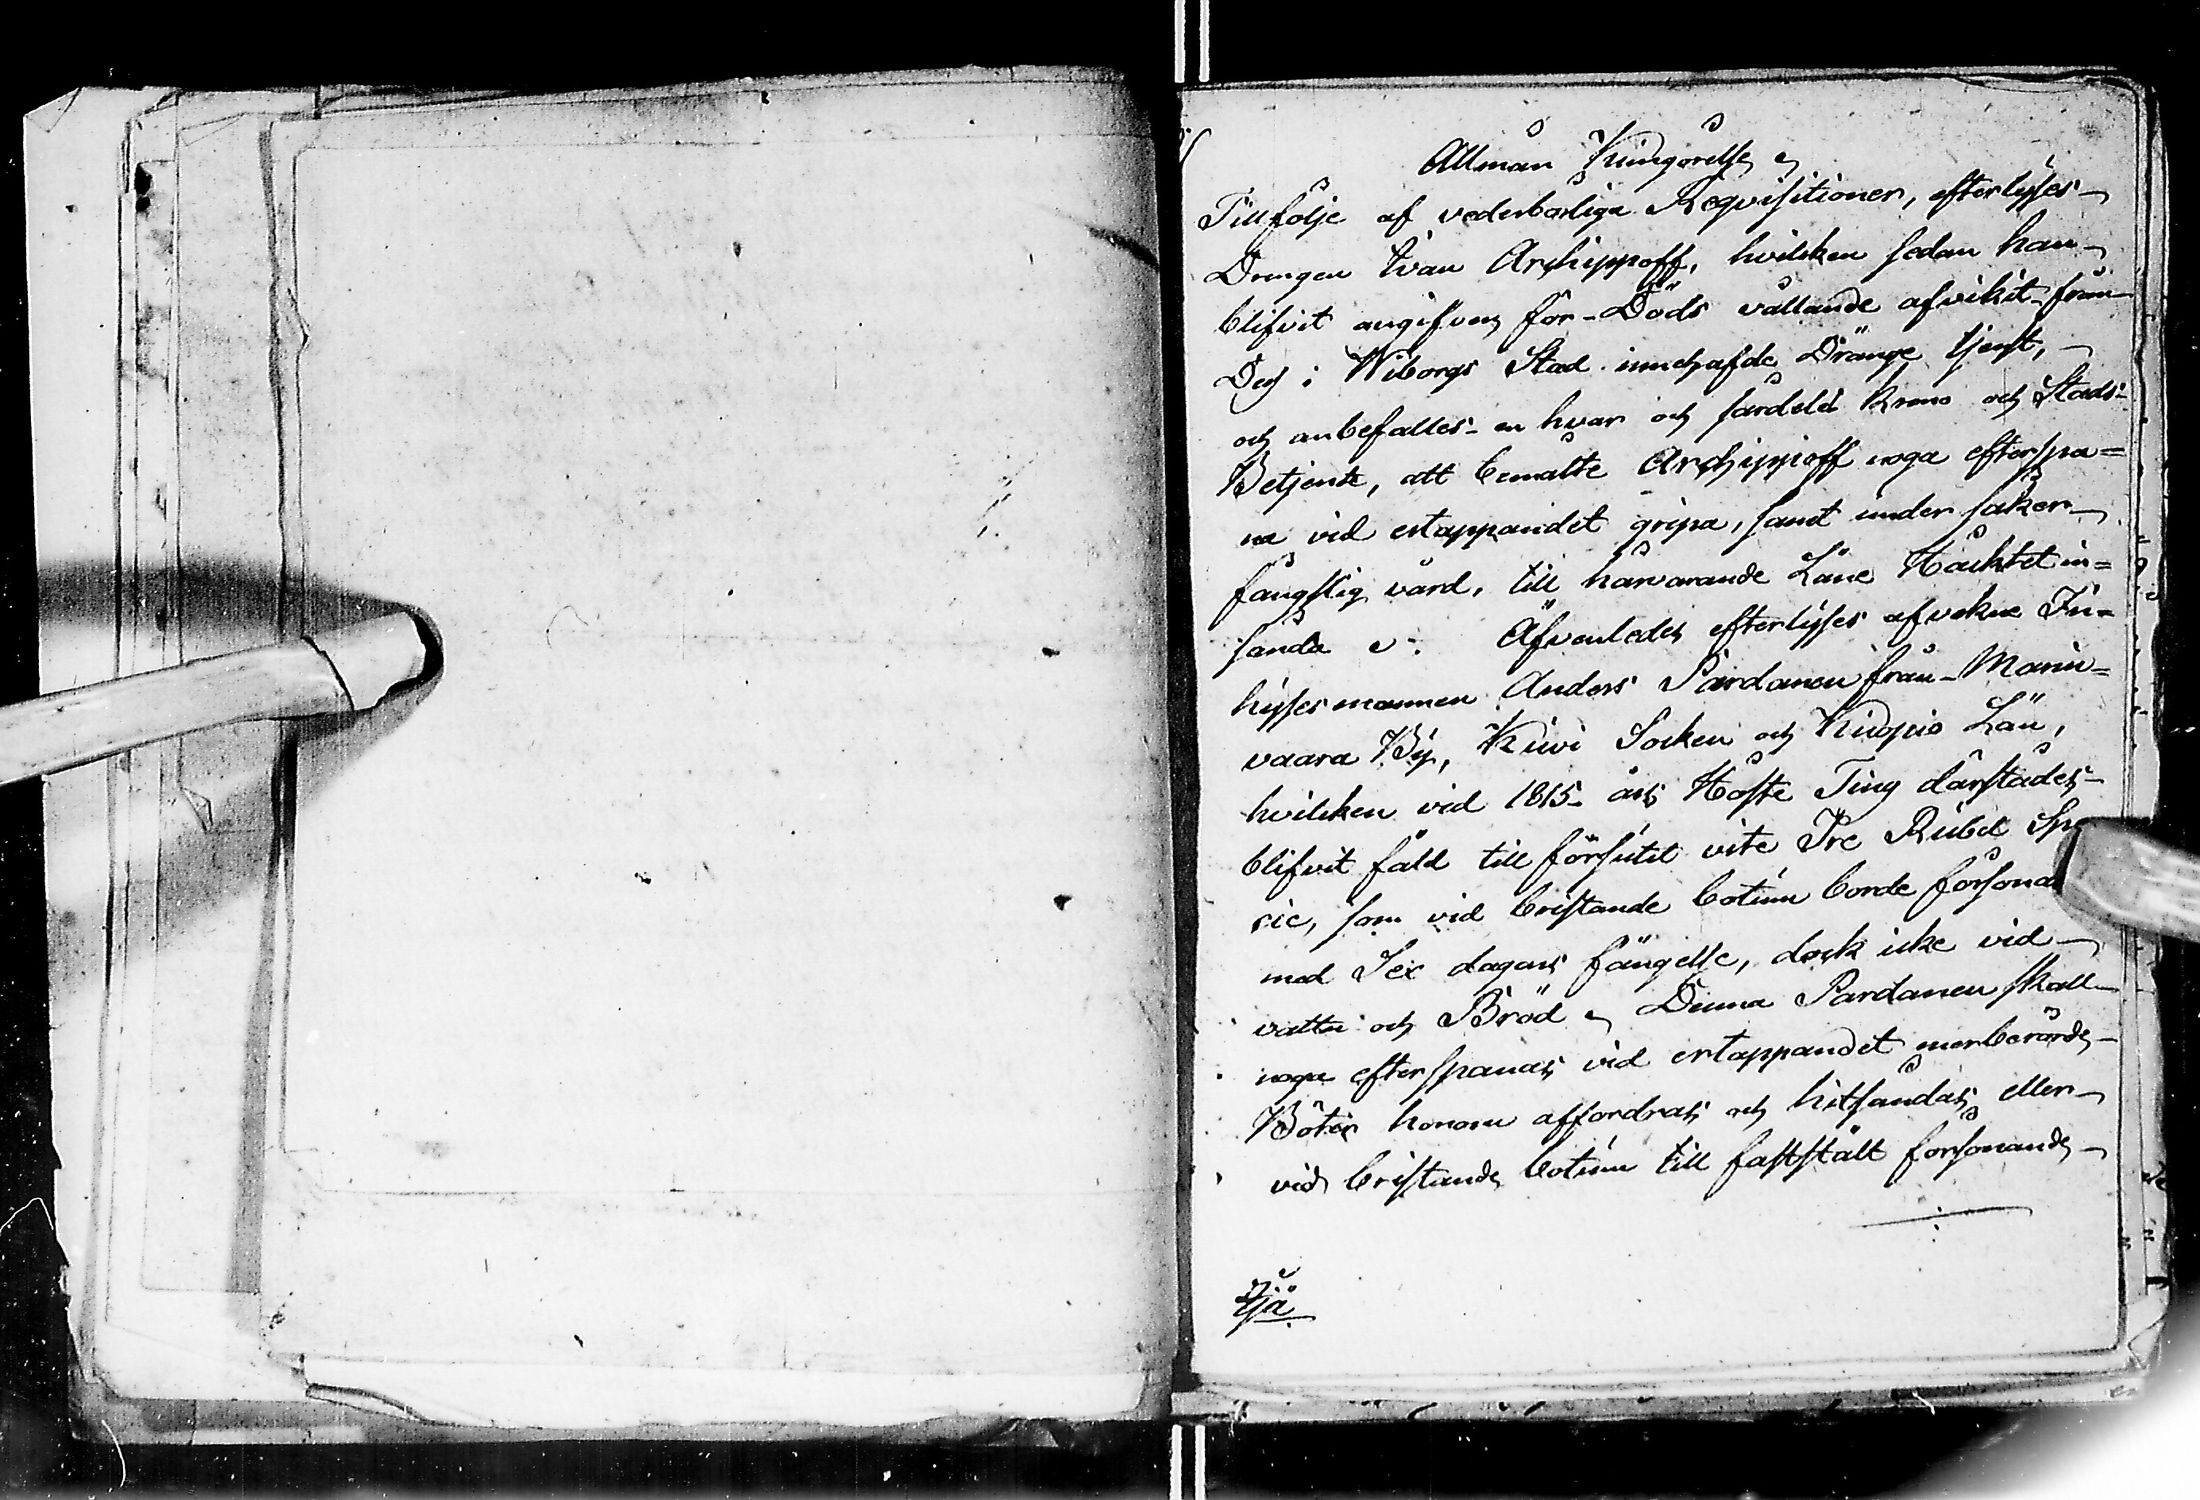 Allmän Kungörelse
Tillfölje af vederbörliga Reqvisitioner, efterlyses
Drängen Ivan Archippoff, hvilken sedan han
blifvit angifven för Döds vållande afvikit från
Des i Wiborgs Stad innehafde Dränge tjenst,
och anbefalles en hvar och särdeles Krono och Stads
Betjente, att bemälte Archippoff noga efterspa=
na vid ertappandet gripa, samt under säker
fångslig vård, till härvarande Läne Häcktet in=
sända. Äfvenledes efterlyses afvekne In=
hysesmannen Anders Pardanen från Marin=
vaara By, Kuvi Socken och Kuopio Län,
hvilken vid 1815 års Höste Ting därstädes
blifvit fäld till försutit vite Tre Rubel
ric, som vid bristande botum borde försonas
med Sex dagars fängelse, dock icke vid
vatten och Bröd. Denna Pardanen skall
noga efterspanas vid ertappandet merberörde
Böter honom affordras och hitsändas eller
vid bristande botum till faststält försonande